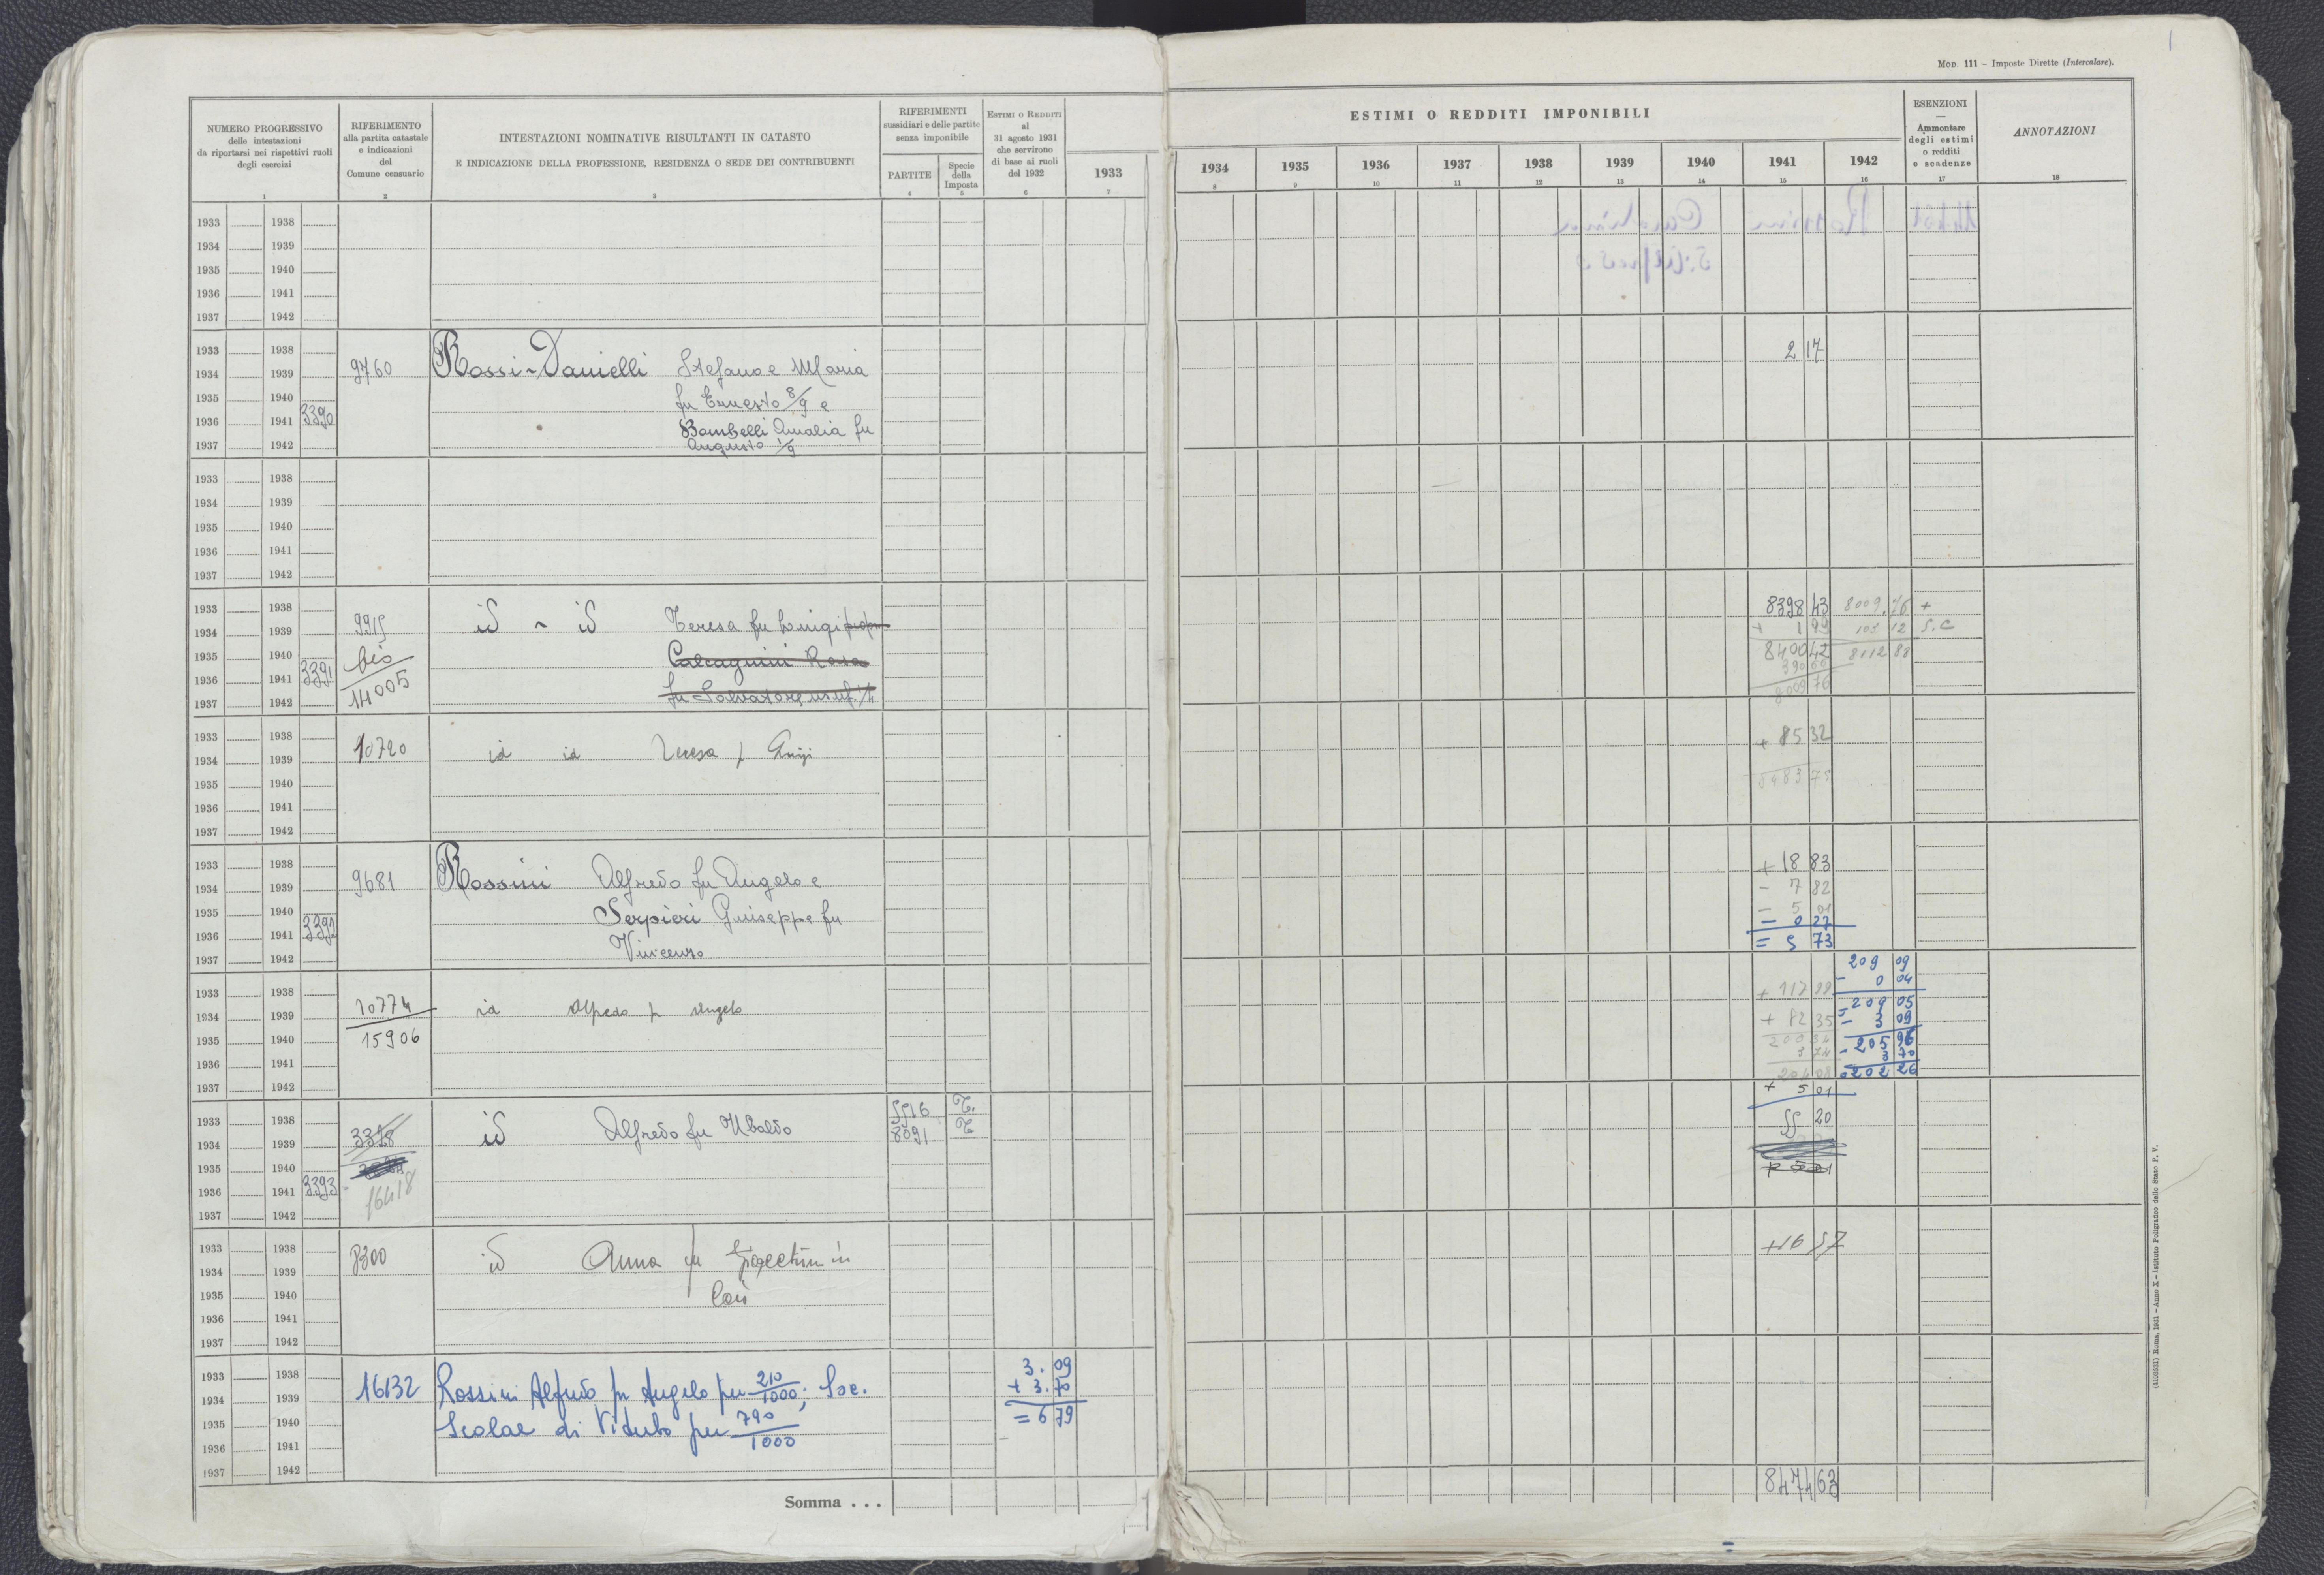 Mod. 111 – Imposte Dirette (Intercalare).
NUMERO PROGRESSIVO
delle intestazioni
da riportarsi nei rispettivi ruoli
degli esercizi
1
RIFERIMENTO
alla partita catastale
e indicazioni
del
Comune censuario
2
INTESTAZIONI NOMINATIVE RISULTANTI IN CATASTO
E INDICAZIONE DELLA PROFESSIONE, RESIDENZA O SEDE DEI CONTRIBUENTI
3
RIFERIMENTI
sussidiari e delle partite
senza imponibile
PARTITE
4
Specie
della
Imposta
5
Estimi o Redditi
al
31 agosto 1931
che servirono
di base ai ruoli
del 1932
6
1933
7
ESTIMI O REDDITI IMPONIBILI
1934 1935 1936 1937 1938 1939 1940 1941 1942
8 9 10 11 12 13 14 15 16
ESENZIONI
—
Ammontare
degli estimi
o redditi
e scadenze
17
ANNOTAZIONI
18
1933 1938
1934 1939
1935 1940
1936 1941
1937 1942
1933 1938
1934 1939
1935 1940
1936 1941 3390
1937 1942
9760
Rossi-Danielli Stefano e Maria
fu Ernesto 8/9 e
Bombelli Amalia fu
Augusto 1/9
2 17
1933 1938
1934 1939
1935 1940
1936 1941
1937 1942
1933 1938
1934 1939
1935 1940
1936 1941 3391
1937 1942
9915
bis
14005
id ~ id Teresa fu Luigi
Calcagnini Rosa
fu Salvatore usuf.
8398 43 8009.76 +
+ 1 99 103 12 S.C
8400 42 8112 88
390 66
8009 76
1933 1938
1934 1939
1935 1940
1936 1941
1937 1942
10720
id id Teresa f Luigi
+ 85 32
1933 1938
1934 1939
1935 1940
1936 1941 3392
1937 1942
9681
Rossini Alfredo fu Angelo e
Serpieri Giuseppe fu
Vincenzo
+ 18 83
- 7 82
- 5 01
- 0 27
= 5 73
1933 1938
1934 1939
1935 1940
1936 1941
1937 1942
10774
15906
id Alfredo f Angelo
+ 117 99
+ 82 35
200 34
3 74
204 08
209 09
- 0 04
= 209 05
- 3 09
205 96
- 3 70
202 26
1933 1938
1934 1939
1935 1940
1936 1941 3393
1937 1942
3328
16418
id Alfredo fu Ubaldo
5516 T.
8091 T
+ 5 01
55 20
1933 1938
1934 1939
1935 1940
1936 1941
1937 1942
8300
id Anna fu
+16 57
1933 1938
1934 1939
1935 1940
1936 1941
1937 1942
16132
Rossini Alfredo fu Angelo per 210/1000; Soc.
Scolae di Viterbo per 790/1000
3. 09
+ 3. 70
= 6 79
Somma . . .
8474 63
(4103531) Roma, 1931 – Anno X – Istituto Poligrafico dello Stato P. V.